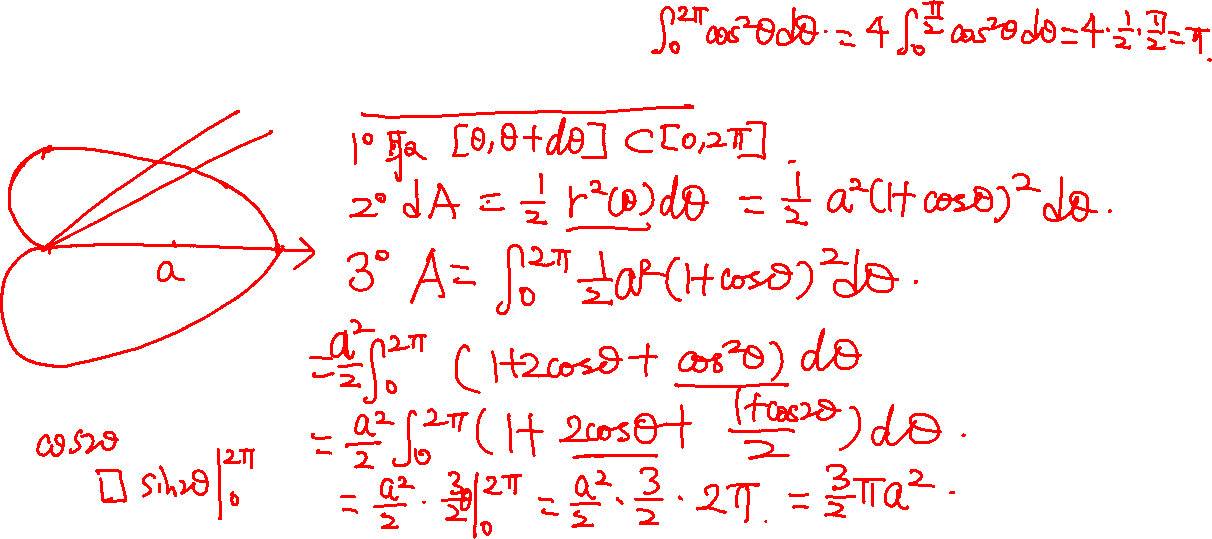 ∫₀^{2π} cos²θdθ = 4∫₀^{π/2} cos²θdθ = 4·1/2·π/2 = π.
1° 取 [θ, θ+dθ] ⊂ [0, 2π].
2° dA = 1/2 r²(θ)dθ = 1/2 a²(1+cosθ)²dθ.
a
3° A = ∫₀^{2π} 1/2 a²(1+cosθ)²dθ.
= a²/2 ∫₀^{2π} (1+2cosθ+cos²θ)dθ
= a²/2 ∫₀^{2π} (1+2cosθ+(1+cos2θ)/2)dθ.
cos2θ
□ sin2θ|₀^{2π}
= a²/2 · 3/2 θ|₀^{2π} = a²/2 · 3/2 · 2π. = 3/2 πa².